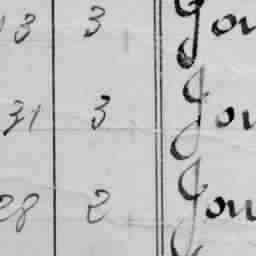 13 3 Jou
31 3 Jou
28 2 Jou